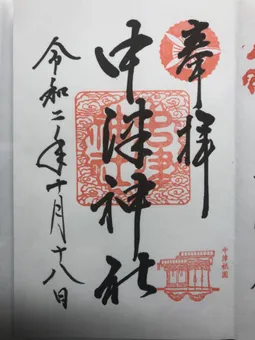 奉拝
中津神社
令和二年十月十八日
中津祇園